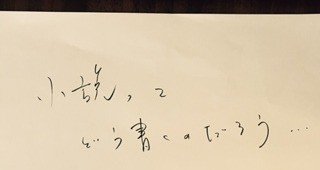 小説って
どう書くのだろう…